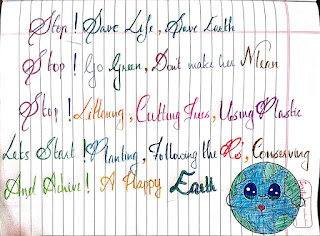 Stop! Save Life, Save Earth
Stop! Go Green, Don't make her Mean
Stop! Littering, Cutting Trees, Using Plastic
Let's Start! Planting, Following the R's, Conserving
And Achive! A Happy Earth